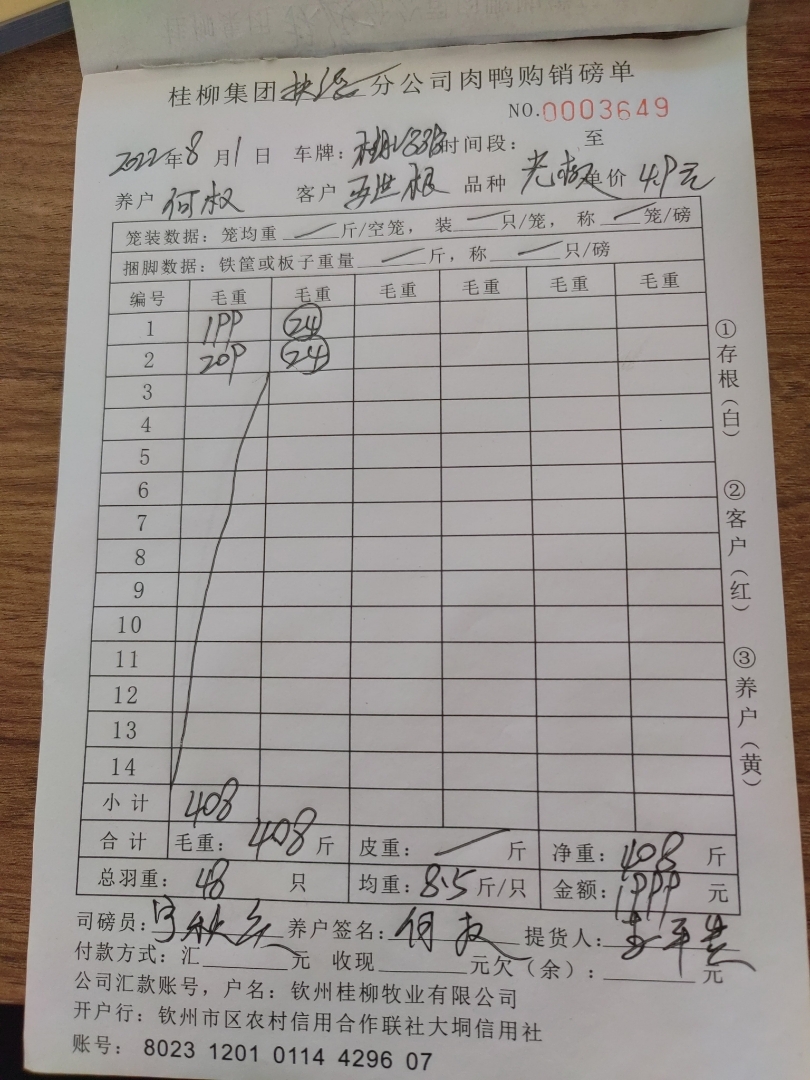 桂柳集团 分公司肉鸭购销磅单
NO.0003649
2022年8月1日 车牌: 时间段: 至
养户 何权 客户 品种 单价 4.9元
笼装数据: 笼均重 斤/空笼, 装 只/笼, 称 笼/磅
捆脚数据: 铁筐或板子重量 斤, 称 只/磅
编号 毛重 毛重 毛重 毛重 毛重 毛重
1 199 24
2 209 24
3
4
5
6
7
8
9
10
11
12
13
14
小计 408
合计 毛重: 408斤 皮重: 斤 净重: 408斤
总羽重: 48只 均重: 8.5斤/只 金额: 1999元
司磅员: 养户签名: 何权 提货人:
付款方式: 汇 元 收现 元欠(余): 元
公司汇款账号, 户名: 钦州桂柳牧业有限公司
开户行: 钦州市区农村信用合作联社大垌信用社
账号: 8023 1201 0114 4296 07
①存根(白)
②客户(红)
③养户(黄)